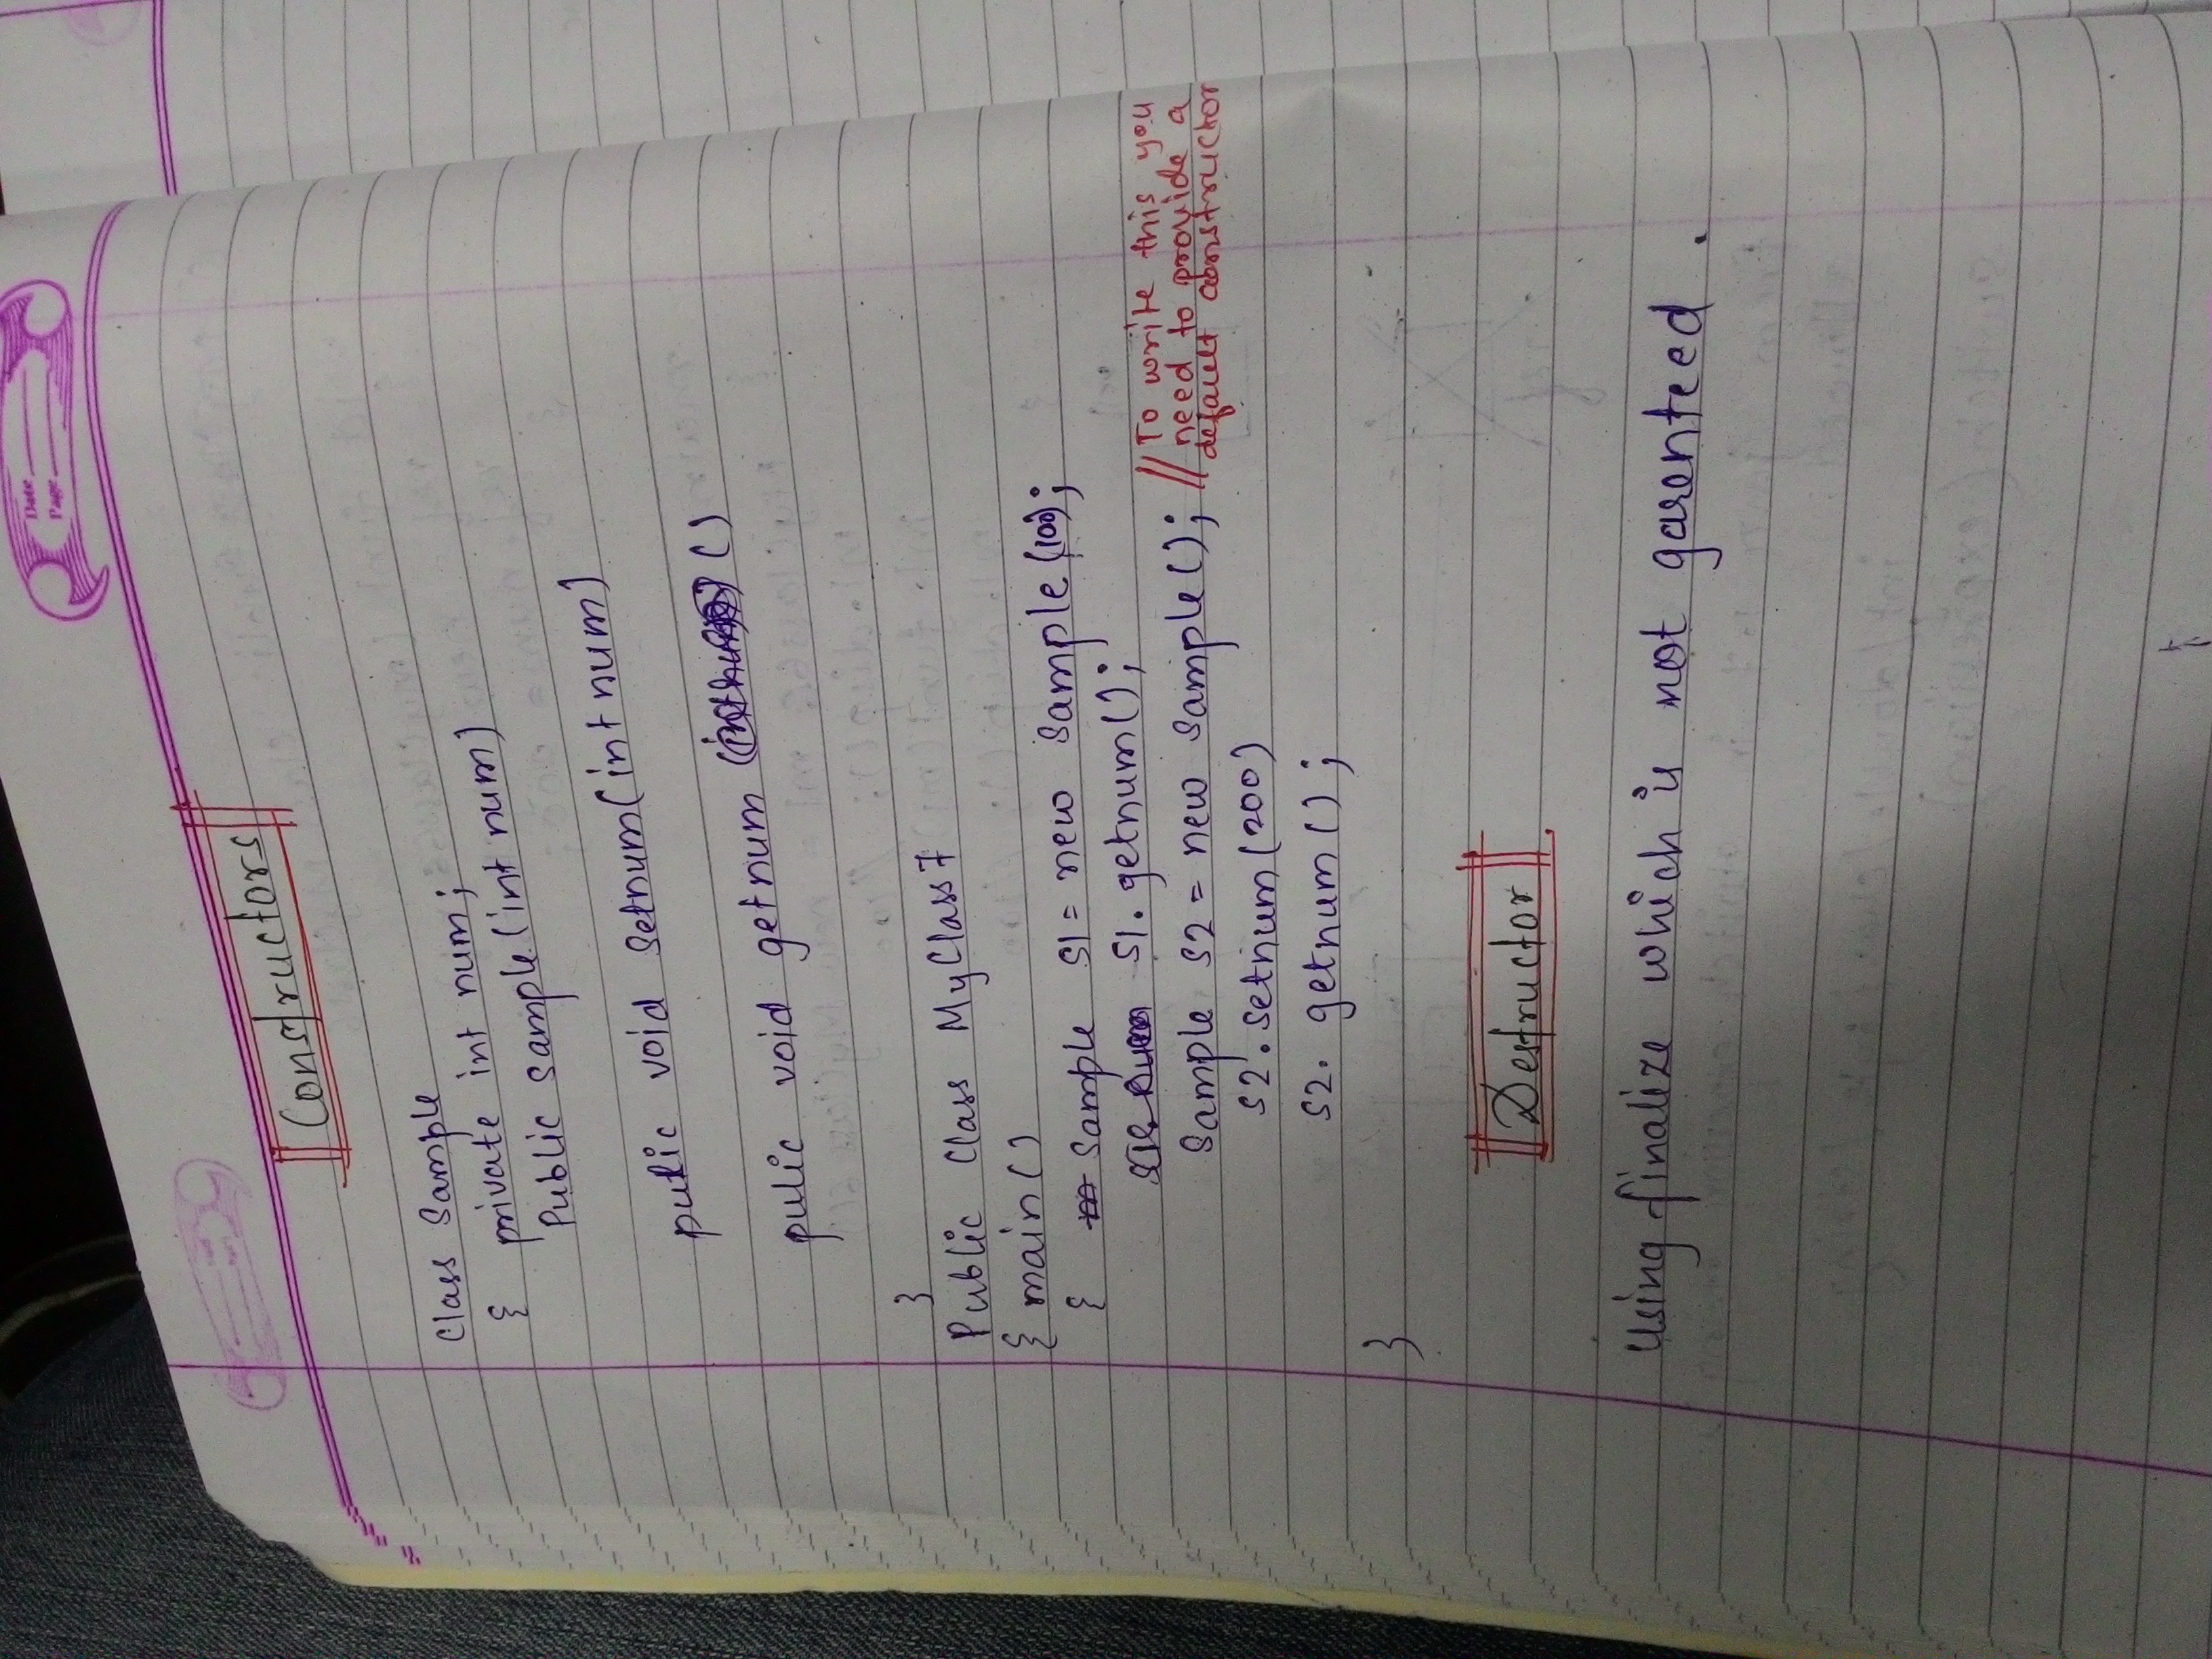 Date
Page
Constructors
Class Sample
{ private int num;
Public Sample(int num)
pulic void Setnum(int num)
pulic void getnum ()
}
Public Class MyClass7
{ main()
{ Sample S1 = new Sample(100);
S1. getnum();
Sample S2 = new Sample(); // To write this you
need to provide a
default constructor
S2. Setnum(200)
S2. getnum();
}
Destructor
Using finalize which is not garenteed.